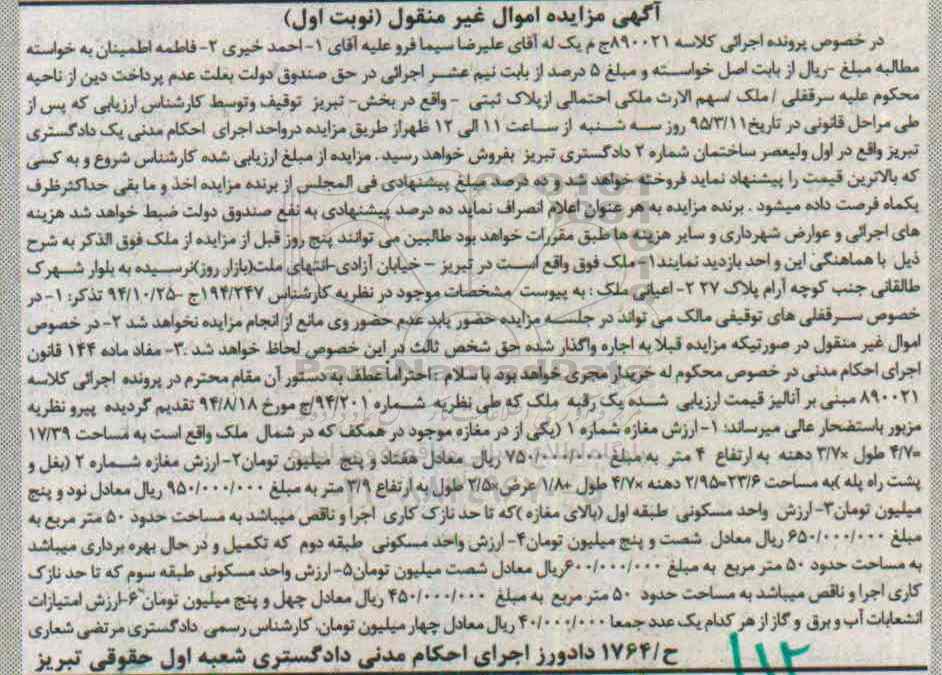 آگهی مزایده اموال غیر منقول (نوبت اول)
در خصوص پرونده اجرائی کلاسه ۸۹۰۰۲۱ج م یک له آقای علیرضا سیما فرو علیه آقای ۱- احمد خیری ۲- فاطمه اطمینان به خواسته
مطالبه مبلغ -ریال از بابت اصل خواسته و مبلغ ۵ درصد از بابت نیم عشر اجرائی در حق صندوق دولت بعلت عدم پرداخت دین از ناحیه
محکوم علیه سرقفلی / ملک /سهم الارث ملکی احتمالی ازپلاک ثبتی - واقع در بخش- تبریز توقیف وتوسط کارشناس ارزیابی که پس از
طی مراحل قانونی در تاریخ ۹۵/۳/۱۱ روز سه شنبه از ساعت ۱۱ الی ۱۲ ظهراز طریق مزایده درواحد اجرای احکام مدنی یک دادگستری
تبریز واقع در اول ولیعصر ساختمان شماره ۲ دادگستری تبریز بفروش خواهد رسید . مزایده از مبلغ ارزیابی شده کارشناس شروع و به کسی
که بالاترین قیمت را پیشنهاد نماید فروخته خواهد شد و ده درصد مبلغ پیشنهادی فی المجلس از برنده مزایده اخذ و ما بقی حداکثرظرف
یکماه فرصت داده میشود . برنده مزایده به هر عنوان اعلام انصراف نماید ده درصد پیشنهادی به نفع صندوق دولت ضبط خواهد شد هزینه
های اجرائی و عوارض شهرداری و سایر هزینه ها طبق مقررات خواهد بود طالبین می توانند پنج روز قبل از مزایده از ملک فوق الذکر به شرح
ذیل با هماهنگی این واحد بازدید نمایند۱-ملک فوق واقع است در تبریز – خیابان آزادی-انتهای ملت(بازار روز)نرسیده به بلوار شهرک
طالقانی جنب کوچه آرام پلاک ۲۷ ۲- اعیانی ملک : به پیوست مشخصات موجود در نظریه کارشناس ۱۹۴/۲۴۷ج -۹۴/۱۰/۲۵ تذکر: ۱- در
خصوص سرقفلی های توقیفی مالک می تواند در جلسه مزایده حضور یابد عدم حضور وی مانع از انجام مزایده نخواهد شد ۲- در خصوص
اموال غیر منقول در صورتیکه مزایده قبلا به اجاره واگذار شده حق شخص ثالث در این خصوص لحاظ خواهد شد .۳- مفاد ماده ۱۴۴ قانون
اجرای احکام مدنی در خصوص محکوم له خریدار مجری خواهد بود با سلام : احتراماً عطف به دستور آن مقام محترم در پرونده اجرائی کلاسه
۸۹۰۰۲۱ مبنی بر آنالیز قیمت ارزیابی شده یک رقبه ملک که طی نظریه شماره ۹۴/۲۰۱/ج مورخ ۹۴/۸/۱۸ تقدیم گردیده پیرو نظریه
مزبور باستضحار عالی میرساند: ۱- ارزش مغازه شماره ۱ (یکی از در مغازه موجود در همکف که در شمال ملک واقع است به مساحت ۱۷/۳۹
=۴/۷ طول ×۳/۷ دهنه به ارتفاع ۴ متر به مبلغ ۷۵۰/۰۰۰/۰۰۰ ریال معادل هفتاد و پنج میلیون تومان۲- ارزش مغازه شماره ۲ (بغل و
پشت راه پله )به مساحت ۲۳/۶=۲/۹۵ دهنه ×۴/۷ طول +۱/۸ عرض×۲/۵ طول به ارتفاع ۳/۹ متر به مبلغ ۹۵۰/۰۰۰/۰۰۰ ریال معادل نود و پنج
میلیون تومان۳- ارزش واحد مسکونی طبقه اول (بالای مغازه )که تا حد نازک کاری اجرا و ناقص میباشد به مساحت حدود ۵۰ متر مربع به
مبلغ ۶۵۰/۰۰۰/۰۰۰ ریال معادل شصت و پنج میلیون تومان۴- ارزش واحد مسکونی طبقه دوم که تکمیل و در حال بهره برداری میباشد
به مساحت حدود ۵۰ متر مربع به مبلغ ۶۰۰/۰۰۰/۰۰۰ریال معادل شصت میلیون تومان۵- ارزش واحد مسکونی طبقه سوم که تا حد نازک
کاری اجرا و ناقص میباشد به مساحت حدود ۵۰ متر مربع به مبلغ ۴۵۰/۰۰۰/۰۰۰ ریال معادل چهل و پنج میلیون تومان ۶-ارزش امتیازات
انشعابات آب و برق و گاز از هر کدام یک عدد جمعا ۴۰/۰۰۰/۰۰۰ ریال معادل چهار میلیون تومان. کارشناس رسمی دادگستری مرتضی شعاری
ح/۱۷۶۴ دادورز اجرای احکام مدنی دادگستری شعبه اول حقوقی تبریز